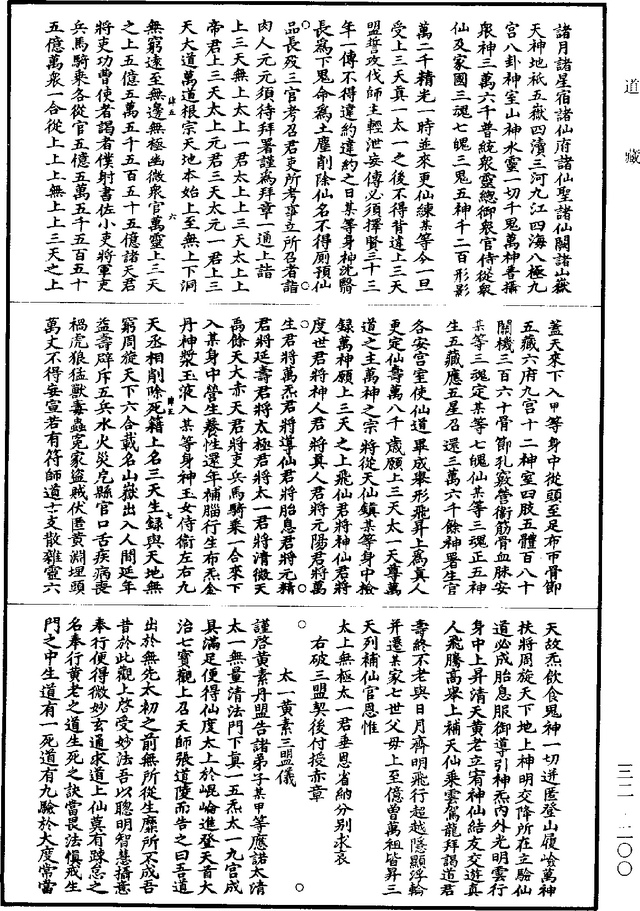 諸月諸星宿諸仙府諸仙聖諸仙闕諸山嶽
天神地祇五嶽四瀆三河九江四海八極九
宮八卦神室山神水靈一切千鬼萬神普攝
衆神三萬六千普統衆靈總御衆官侍從衆
仙及家國三魂七魄三鬼五神千二百形影
萬二千精光一時並來更仙練某等今一旦
受上三天真一太一之後不得背違上三天
盟誓攻伐師主輕泄妄傳必須擇賢三十三
年一傳不得違約違約之日某等身神沈翳
長爲下鬼命爲土塵削除仙名不得厠預仙
品長殁三官考召君吏所考筆立所召者詣
肉人元元須待拜署謹爲拜章一通上詣
上三天無上太上一君太上上三天太上上
帝君上三天太上元君三天太元一君上三
天大道萬道根宗天地本始上至無上下洞
無窮遠至無邊無極幽微衆官萬靈上三天
之上五億五萬五千五百五十五億諸天君
將吏功曹使者謁者僕射書佐小吏將軍吏
兵馬騎乘各從官五億五萬五千五百五十
五億萬衆一合從上上上無上上三天之上
蓋天來下入甲等身中從頭至足布帀骨節
五藏六府九宮十二神室四肢五體百八十
關機三百六十骨節孔竅營衛筋骨血脉安
某等三魂定某等七魄仙某等三魂正五神
生五藏應五星召還三萬六千餘神署生官
各安宮室使仙道畢成舉形飛昇上爲真人
更定仙壽萬八千歲願上三天太一天尊萬
道之主萬神之宗將從天仙鎮某等身中檢
録萬神願上三天之上飛仙君將神仙君將
度世君將神人君將真人君將元陽君將萬
生君將萬炁君將導仙君將胎息君將元精
君將延壽君將太極君將太一君將清微天
禹餘天大赤天君將吏兵馬騎乘一合來下
入某身中營生養性還年補腦行生布炁金
丹神漿玉液入某等身神玉女侍衛左右九
天丞相削除死籍上名三天生録與天地無
窮周旋天下六合戴名山嶽出入人間延年
益壽辟斥五兵水火災厄縣官口舌疾病喪
禍虎狼猛獸毒蟲寃家盜賊伏匿黄淵埋頭
萬丈不得妄宣若有符師道士支散雜靈六
天故炁飲食鬼神一切迸匿登山履嶮萬神
扶將周旋天下地上神明交降所在立驗仙
道必成胎息服御導引神炁内外光明雲行
身中上昇清天黄老立宥神仙結友交遊真
人飛騰高舉上補天仙乘雲駕龍拜謁道君
壽終不老與日月齊明飛行超越隱顯浮輪
并遷某家七世父母上至億曾萬祖皆昇三
天列補仙官恩惟
太上無極太一君垂恩省納分别求哀
右破三盟契後付授亦章
太一黄素三盟儀
謹啓黄素丹盟告諸弟子某甲等應諾太清
太一無量清法門下真一五炁太一九宮成
具滿足便得仙度太上於崐崘進登天首大
治七寳觀上召天師張道陵而告之曰吾道
出於無先太初之前無所從生靡所不成吾
昔於此觀上啓受妙法吾以聰明智慧攝意
奉行便得微妙玄通求道上仙莫有疎怠之
名奉行黄老之道生死之訣當畏法慎戒生
門之中生道有一死道有九驗於大度常當
道藏
三二・二〇〇
肆五
六
肆五
七